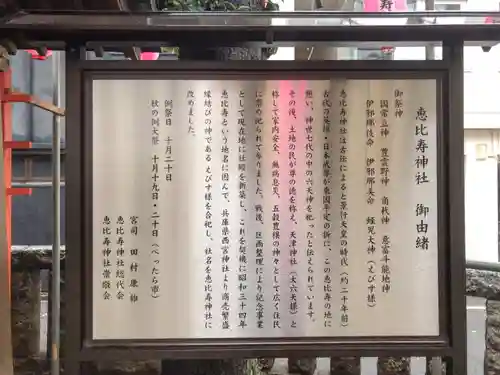 恵比寿神社　御由緒
御祭神
国常立神　豊雲野神　角杙神　意富斗能地神
伊邪那岐命　伊邪那美命　蛭児大神（えびす様）
恵比寿神社は古伝によると景行天皇の時代（約二千年前）
古代の英雄・日本武尊が東国平定の折に、この恵比寿の地に
憩い、神世七代の中の六天神を祀ったと伝えられています。
その後、土地の民が尊の徳を称え、天津神社（大六天様）と
称して家内安全、無病息災、五穀豊穣の神々として広く住民
に崇め祀られて参りました。戦後、区画整理により記念事業
として現在地に社殿を新築し、これを契機に昭和三十四年
恵比寿という地名に因んで、兵庫県西宮神社より商売繁盛
縁結びの神であるえびす様を合祀し、社名を恵比寿神社に
改めました。
例祭日　十月二十日
秋の例大祭　十月十九日・二十日（べったら市）
宮司　田村康雄
恵比寿神社総代会
恵比寿神社崇敬会